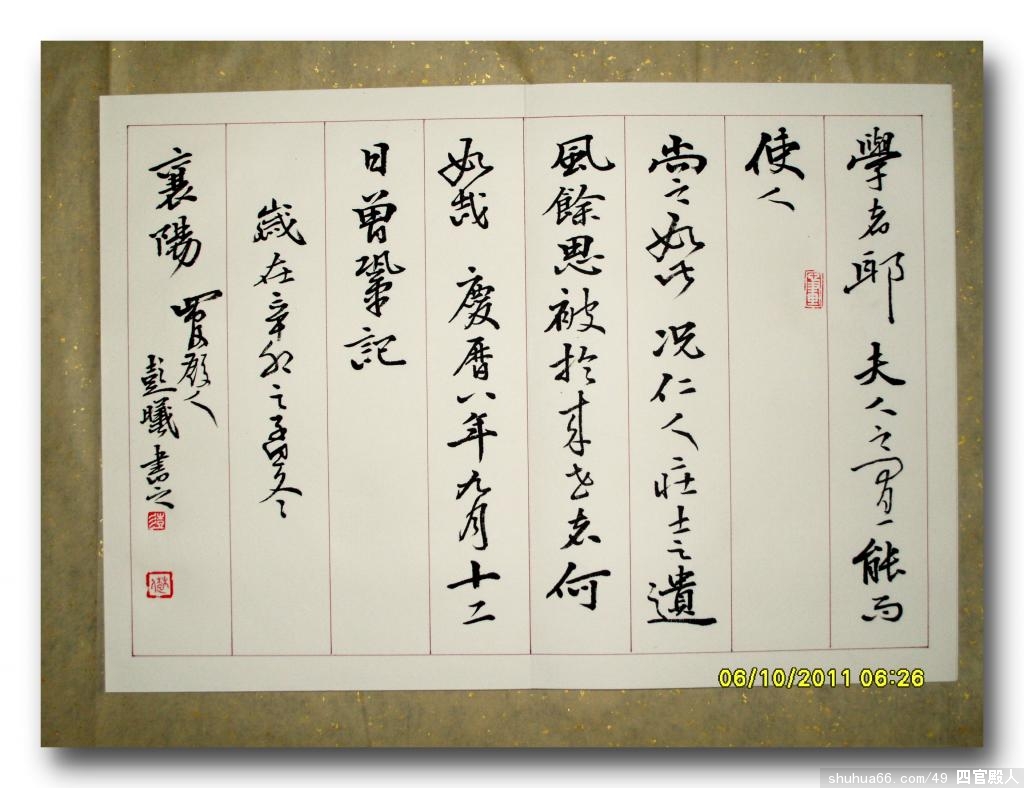 學者耶 夫人之有一能而
使人
尚之如此 况仁人庄士之遺
風餘思被於来世者何
如哉 慶暦八年九月十二
日曾鞏記
歲在辛卯之冬
襄陽 四官殿人
彭曦書之
06/10/2011 06:26
shuhua66.com/49 四官殿人